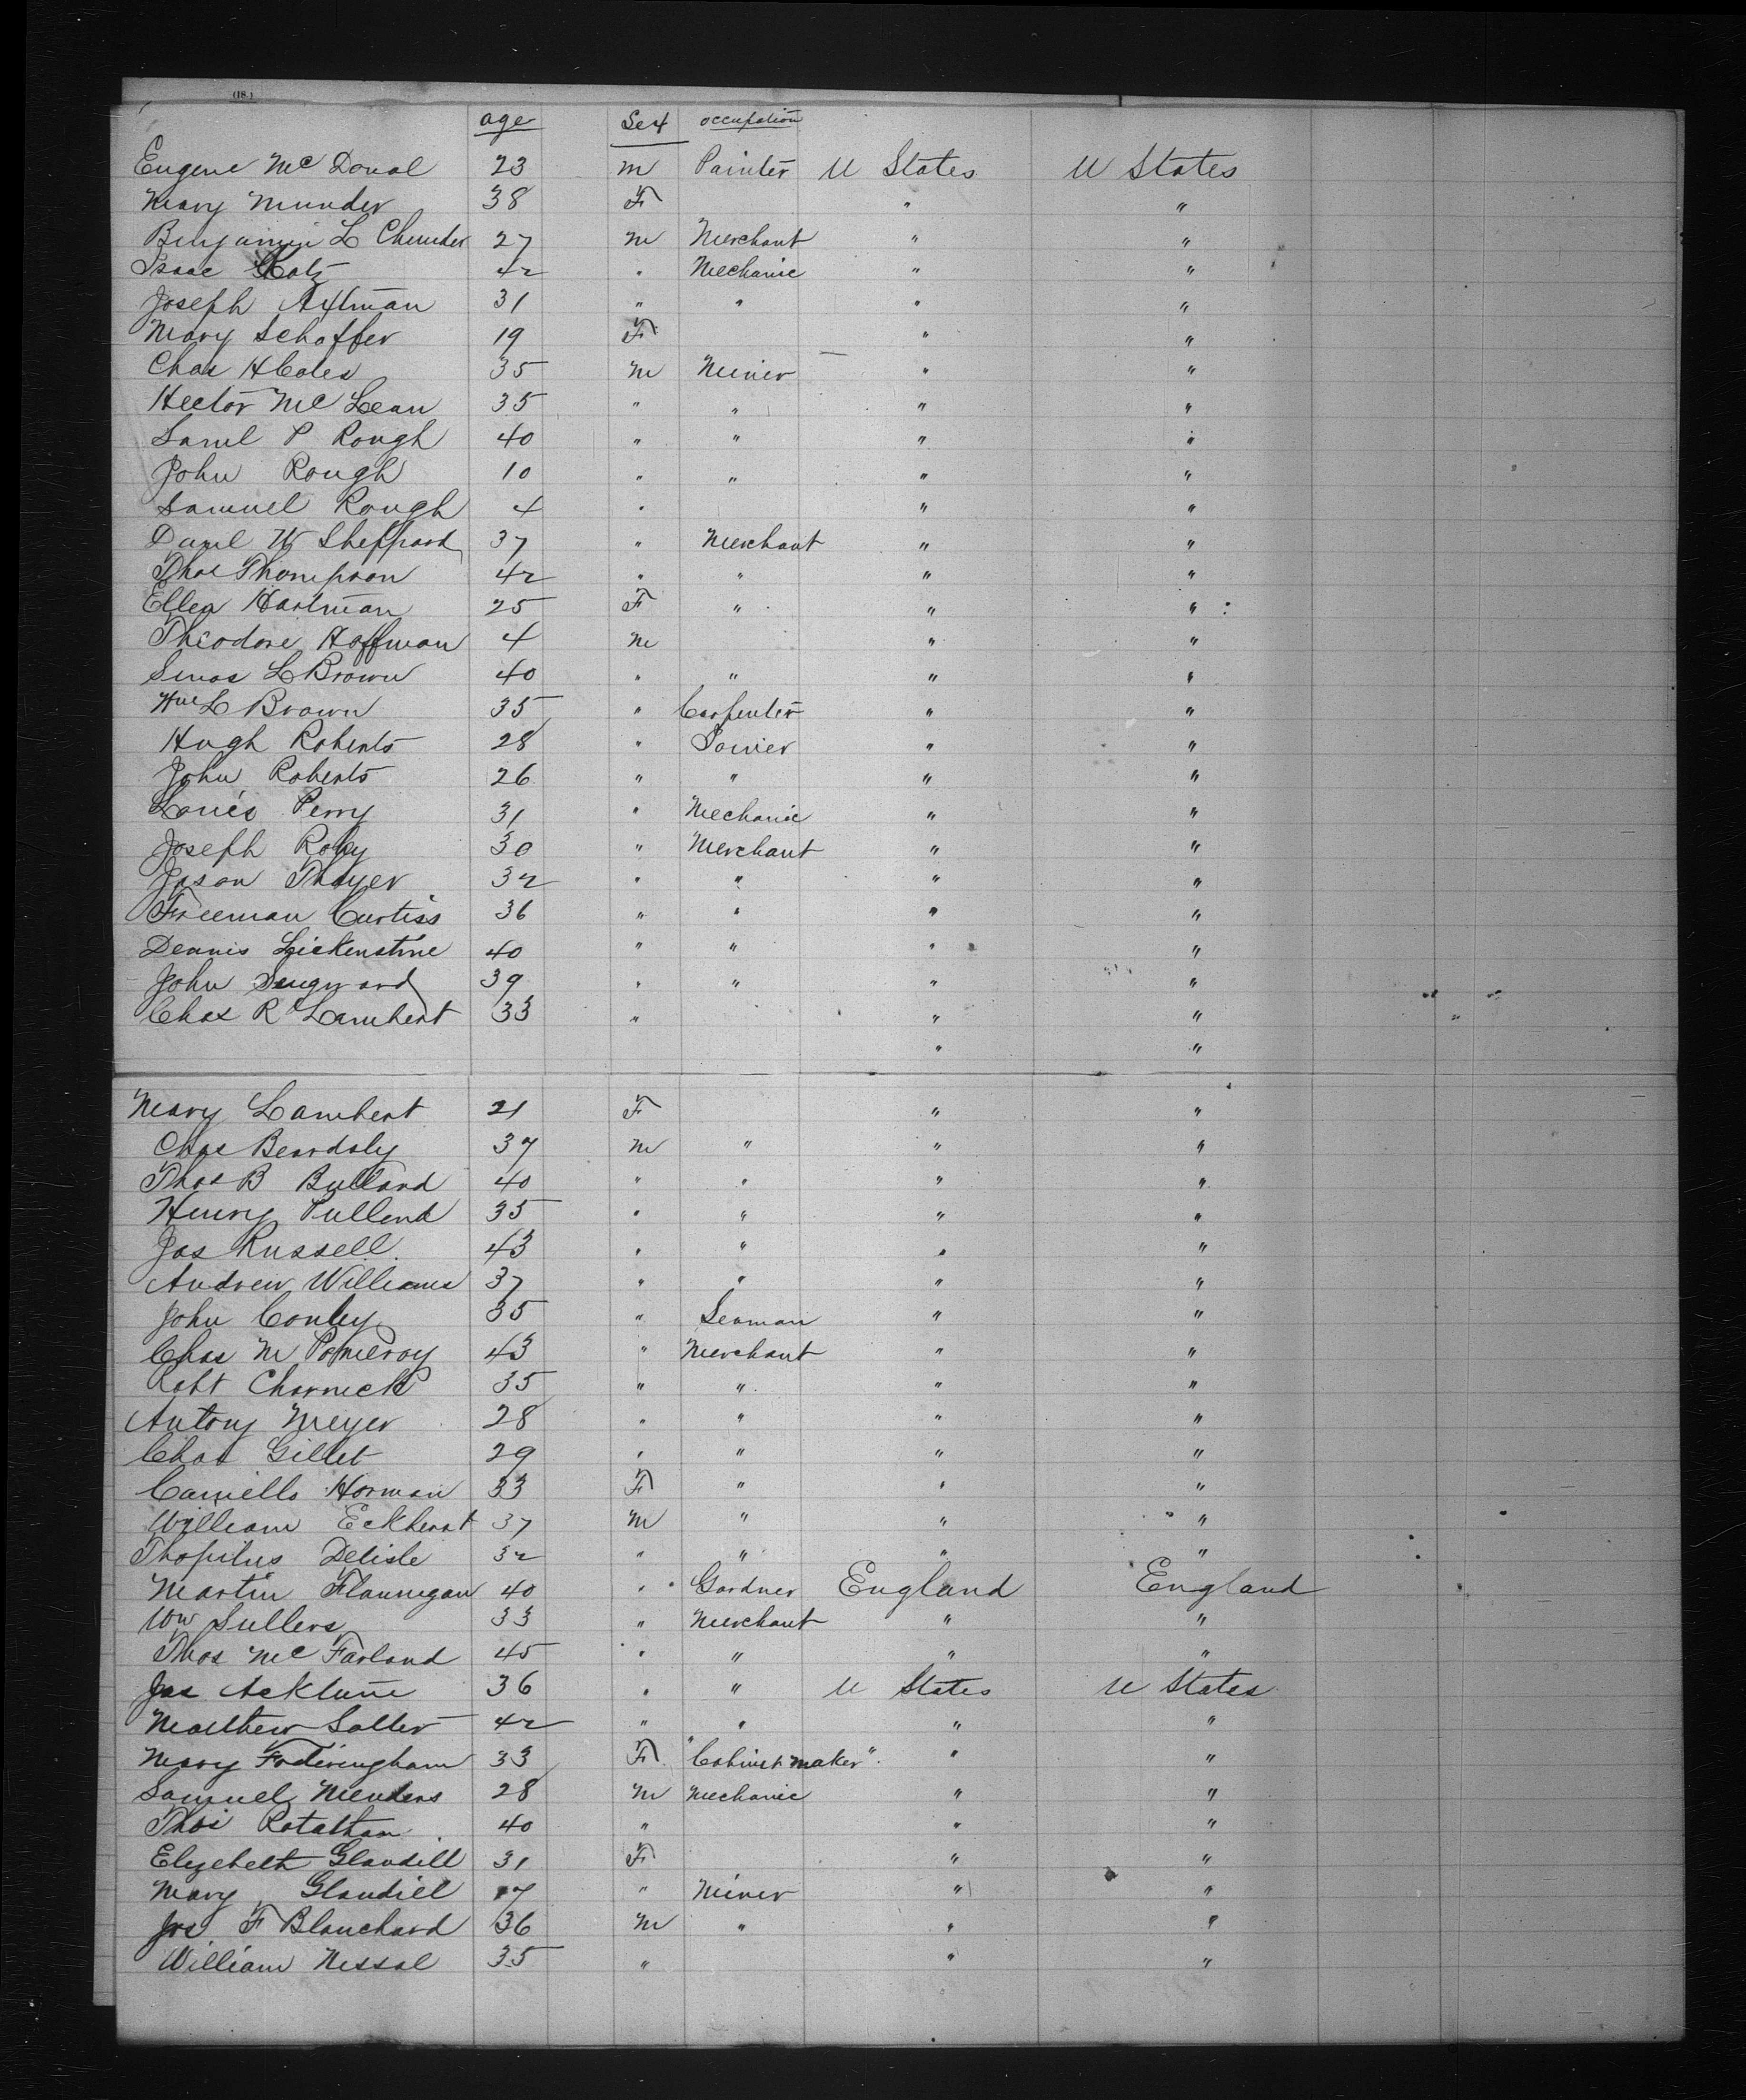 (18.)
age Sex occupation
Eugene Mc Donal 23 m Painter U States U States
Mary Munder 38 F " "
Benjamin L 27 m Merchant " "
Isaac Katz 42 " Mechanic " "
Joseph Axtman 31 " " " "
Mary Schaffer 19 F " "
Chas H Coles 35 m Miner " "
Hector Mc Lean 35 " " " "
Saml P Rough 40 " " " "
John Rough 10 " " " "
Samuel Rough 4 " " "
Danl W Sheppard 37 " Merchant " "
Thos Thompson 42 " " " "
Ellen Hartman 25 F " " "
Theodore Hoffman 4 m " "
L Brown 40 " " " "
Wm L Brown 35 " Carpenter " "
Hugh Roberts 28 " " "
John Roberts 26 " " " "
Louis Perry 31 " Mechanic " "
Joseph Roby 30 " Merchant " "
Jason Thayer 32 " " " "
Freeman Curtiss 36 " " " "
Dennis Lickenstine 40 " " " "
John 39 " " " "
Chas R Lambert 33 " " "
" "
Mary Lambert 21 F " "
Chas Beardsly 37 m " " "
Thos B Bullard 40 " " " "
Henry Pullend 35 " " " "
Jas Russell 43 " " " "
Andrew Williams 37 " " " "
John Conley 35 " Seaman " "
Chas M Pomeroy 43 " Merchant " "
Robt Charnick 35 " " " "
Antony Meyer 28 " " " "
Chas Gillet 29 " " " "
Camello Horman 33 F " " "
William Eckherat 37 m " " "
Thopilus Delisle 32 " " " "
Martin Flannegan 40 " Gardner England England
Wm Sullers 33 " Merchant " "
Thos Mc Farland 45 " " " "
Jas 36 " " U States U States
Matthew Salter 42 " " " "
Mary Fodevingham 33 F "Cabinet maker" " "
Samuel Menders 28 m Mechanic " "
40 " " "
Elizebeth Glandill 31 F " "
Mary Glandill 17 " Miner " "
Jos F Blanchard 36 m " " "
William Nessal 35 " " "